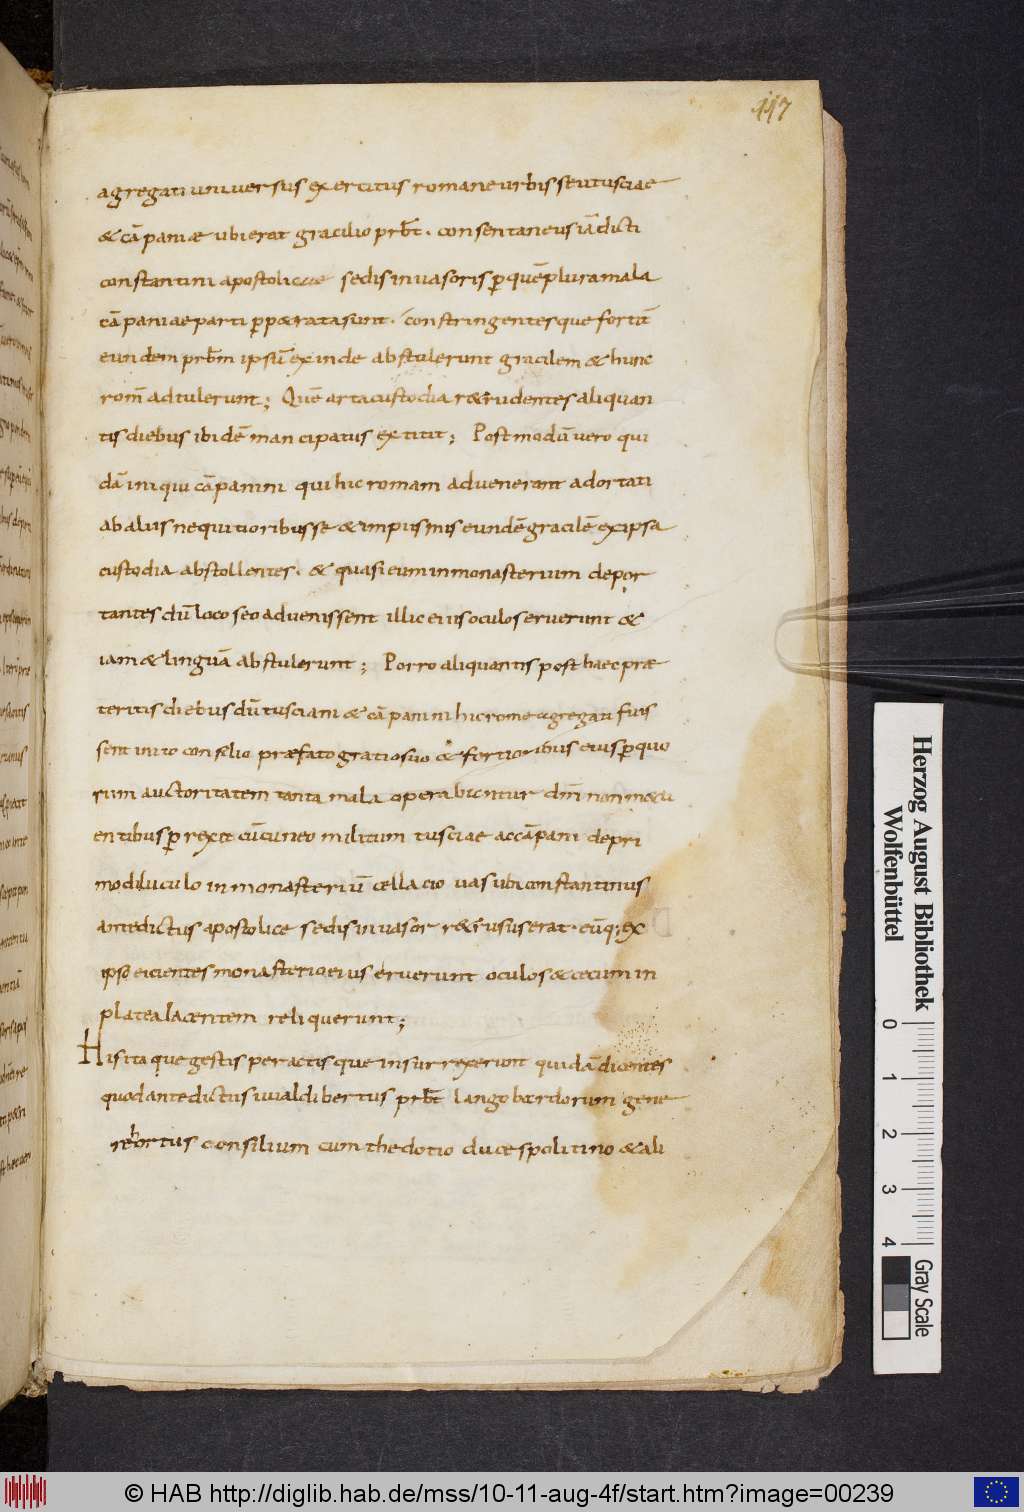 117
agregati universus exercitus romane urbis seu tusciae
& cāpaniae ubi erat gracilio prbt̄. consentaneus iādicti
constantini apostolicae sedis invasoris ꝑ quē plura mala
cāpaniae parti ꝑp&rata sunt. constringentesque fortit̄
eundem prbm̄ ipsū exinde abstulerunt gracilem & hunc
rom̄ adtulerunt; Quē arta custodia r&rudentes aliquan
tis diebus ibidē mancipatus extitit; Postmodū vero qui
dā iniqui cāpanini qui hic romam advenerant adortati
ab aliis nequitioribus se & impiissimis eundē gracilē ex ipsa
custodia abstollentes. & quasi eum in monasterium depor
tantes dū loco seo advenissent illic eius oculos eruerunt &
iam & linguā abstulerunt; Porro aliquantis post haec præ
teritis diebus dū tusciani & cāpanini hic rome agregati fuis
sent inito consilio præfato gratioso & fortioribus eius ꝑ quo
rum auctoritatem tanta mala operabuntur dm̄ non m&u
entibus ꝑrexit cū cuneo militum tusciae ac cāpani de pri
mo diluculo in monasteriū cella cio vas ubi constantinus
antedictus apostolice sedis invasor r&rusus erat. eūq; ex
ipso eicientes monasterio eius eruerunt oculos & cecum in
platea lacentem reliquerunt;
His itaque gestis peractisque insurrexerunt quidā dicentes
quod antedictus uualdibertus prbt̄ langobardorum gene
re hortus consilium cum thedotio duce spolitino & ali
Herzog August Bibliothek
Wolfenbüttel
0 1 2 3 4
Gray Scale
© HAB http://diglib.hab.de/mss/10-11-aug-4f/start.htm?image=00239